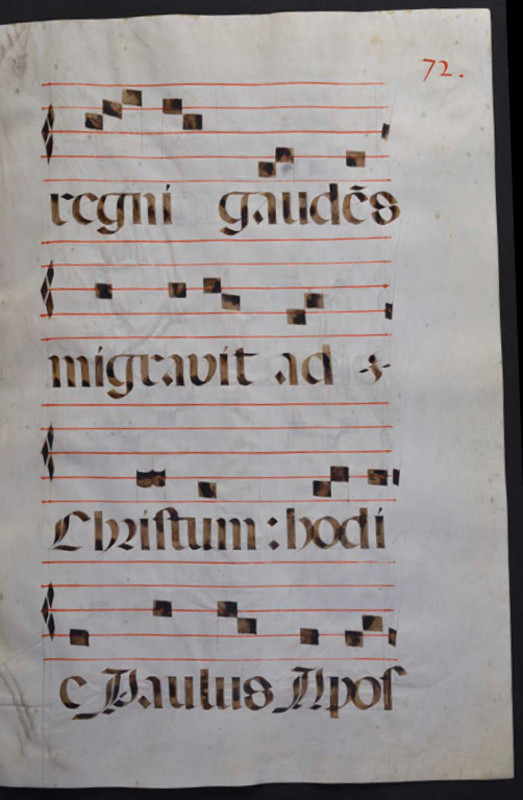 72.
regni gaudēs
migravit ad
Christum : hodi
e Paulus Apos